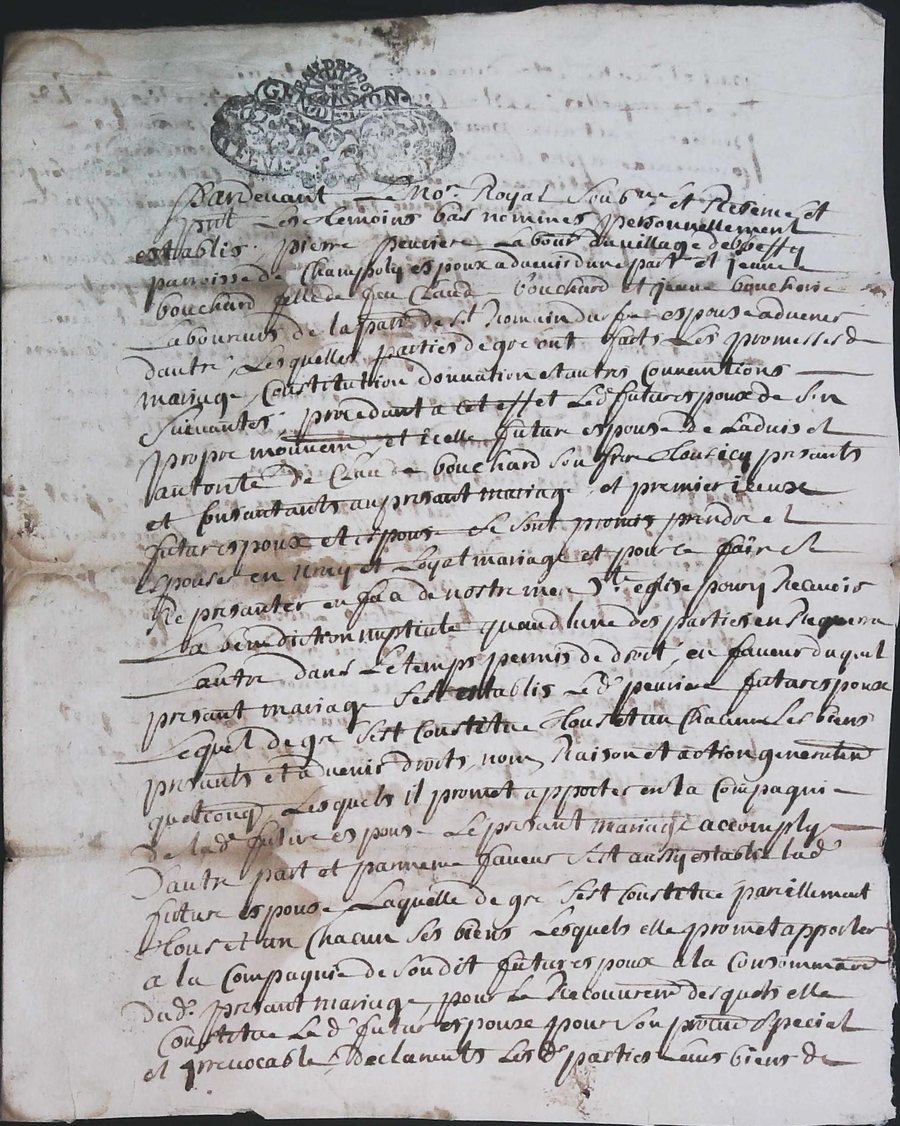 GEN LION
Pardevant Le No.re Royal Soubne et Reserve et
pnt Les temoins bas nommes personnellement
establis, pierre peuriere Labour du village de
parroisse de Champoly espoux advenir dune part et jeanne
bouchard fille de feu Claude bouchard et jeanne boucherie
Laboureurs de la parr de St Romain durfe espouse advenir
dautre, Lesquelles parties de gré ont faits Les promesses de
mariage, Constitution donnation et autres Conventions
Suivantes, procedant a cet effet Led futur espoux de son
propre mouvem et icelle future espouse de Ladvis et
autorité de Claude bouchard son frere tous icy presants
et Consantants au presant mariage, et premier iceux
futur espoux et espouse Se sont promis prendre et
espouser en vray et Loyal mariage et pour ce faire et
Se presanter en face de nostre mere Ste eglise pour y Recevoir
La benediction nuptiale quand lune des parties en Requerra
Lautre dans Le temps permis de droit, en faveur duquel
presant mariage Sest establis Led peuriere futur espoux
Lequel de gré Sest Constitue tous et un Chacuns Les biens
presants et advenir droits, noms, Raison et action generallem
quelconq Lesquels il promet apporter en la Compagnie
de lad future espouse Le presant mariage accomply
Dautre part et parmeme faveur Sest aussy establie lad
future espouse Laquelle de gré Sest Constitue pareillement
tous et un Chacun Ses biens Lesquels elle promet apporter
a la Compagnie de Soudit futur espoux a la Consommaon
dud. presant mariage, pour Le Recouvrem desquels elle
Constitue Led futur espoux pour Son procur Special
et irrevocable, declarants Les d parties Leurs biens de